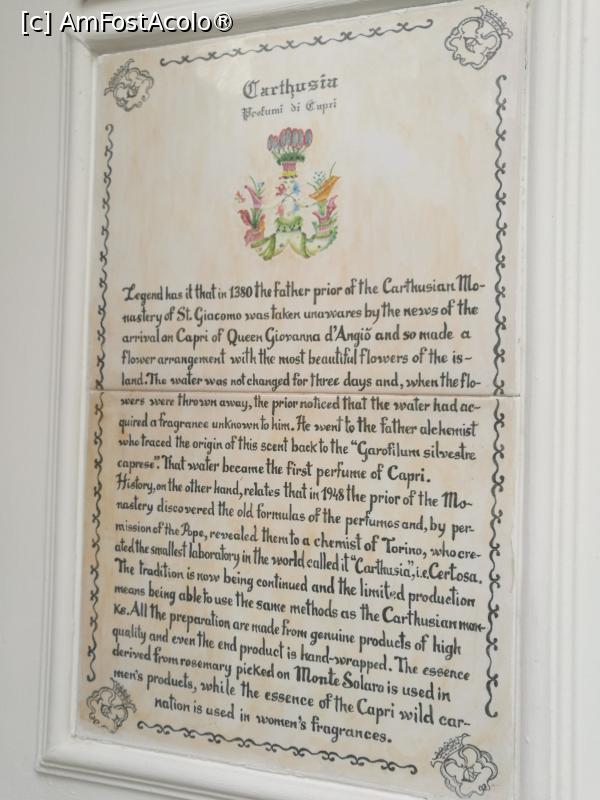 [c] AmFostAcolo®
Carthusia
Profumi di Capri
Legend has it that in 1380 the father prior of the Carthusian Mo-
nastery of St. Giacomo was taken unawares by the news of the
arrival on Capri of Queen Giovanna d'Angiŏ and so made a
flower arrangement with the most beautiful flowers of the is-
land. The water was not changed for three days and, when the flo-
wers were thrown away, the prior noticed that the water had ac-
quired a fragrance unknown to him. He went to the father alchemist
who traced the origin of this scent back to the "Garofilum silvestre
caprese". That water became the first perfume of Capri.
History, on the other hand, relates that in 1948 the prior of the Mo-
nastery discovered the old formulas of the perfumes and, by per-
mission of the Pope, revealed them to a chemist of Torino, who cre-
ated the smallest laboratory in the world called it "Carthusia", i.e. Certosa.
The tradition is now being continued and the limited production
means being able to use the same methods as the Carthusian mon-
ks. All the preparation are made from genuine products of high
quality and even the end product is hand-wrapped. The essence
derived from rosemary picked on Monte Solaro is used in
men's products, while the essence of the Capri wild car-
nation is used in women's fragrances.